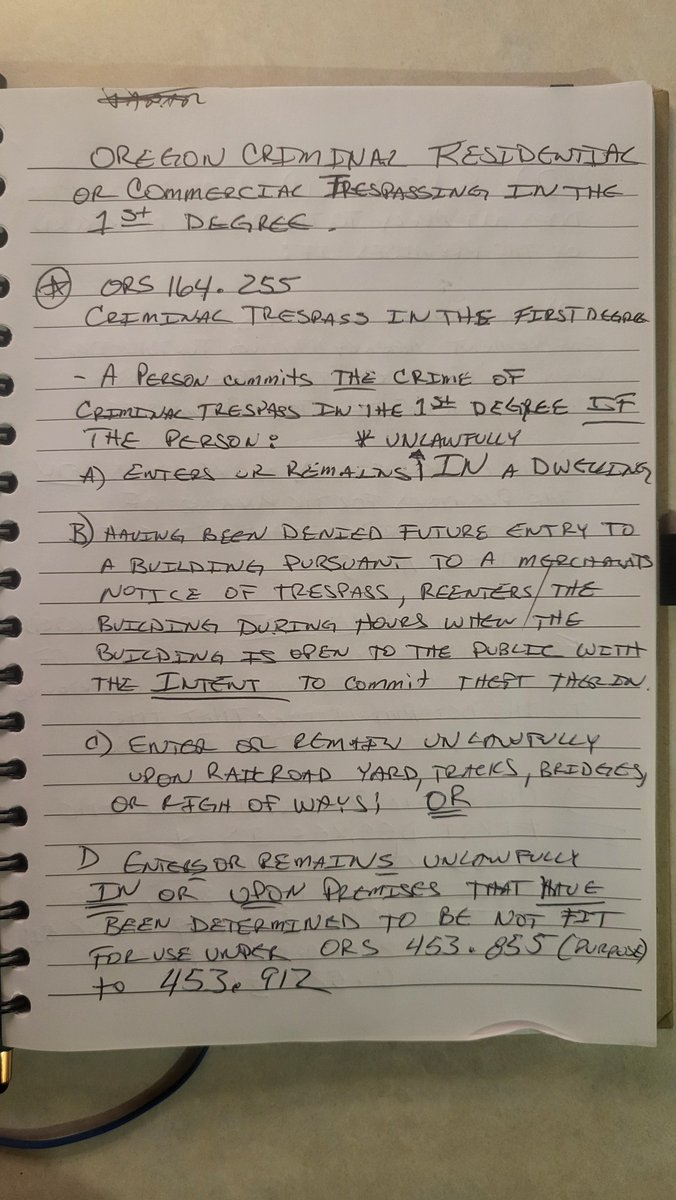 OREGON CRIMINAL RESIDENTIAL
OR COMMERCIAL TRESPASSING IN THE
1st DEGREE.
ORS 164.255
CRIMINAL TRESPASS IN THE FIRST DEGREE
- A PERSON commits THE CRIME OF
CRIMINAL TRESPASS IN THE 1st DEGREE IF
THE PERSON: * UNLAWFULLY
A) ENTERS OR REMAINS IN A DWELLING
B) HAVING BEEN DENIED FUTURE ENTRY TO
A BUILDING PURSUANT TO A MERCHANTS
NOTICE OF TRESPASS, REENTERS THE
BUILDING DURING HOURS WHEN THE
BUILDING IS OPEN TO THE PUBLIC WITH
THE INTENT TO commit THEFT THERIN.
C) ENTER OR REMAIN UNLAWFULLY
UPON RAILROAD YARD, TRACKS, BRIDGES,
OR RIGH OF WAYS; OR
D ENTERS OR REMAINS UNLAWFULLY
IN OR UPON PREMISES THAT HAVE
BEEN DETERMINED TO BE NOT FIT
FOR USE UNDER ORS 453.855 (PURPOSE)
to 453.912